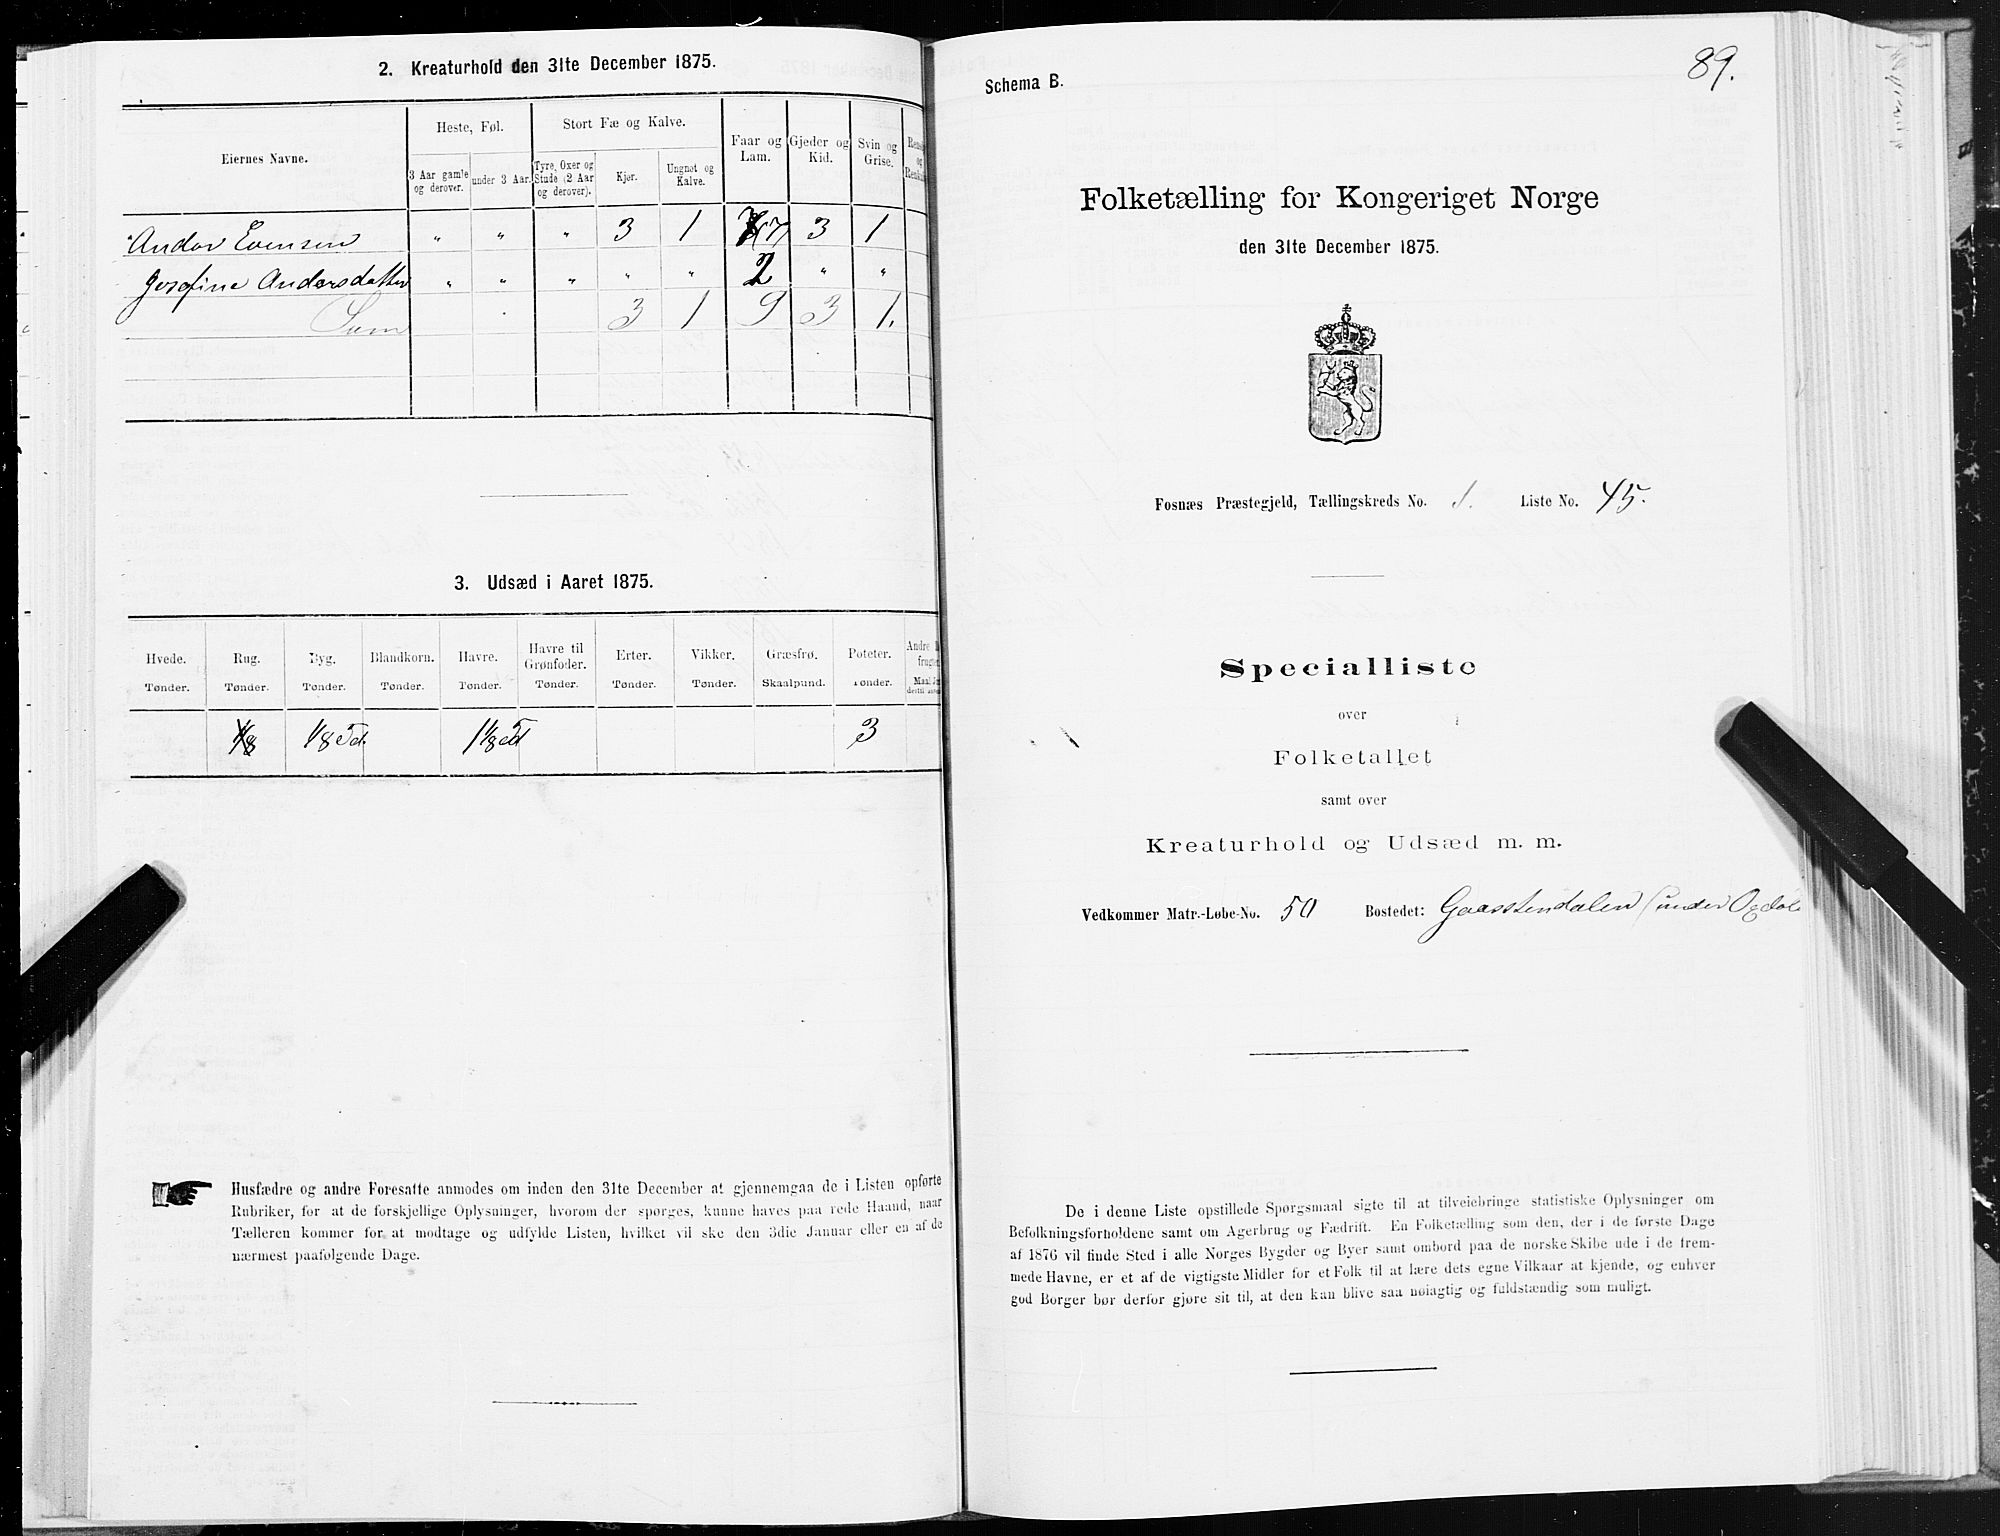 2. Kreaturhold den 31te December 1875.
Eiernes Navne.
Heste, Føl.
Stort Fæ og Kalve.
Faar og Lam.
Gjeder og Kid.
Svin og Grise.
3 Aar gamle og derover.
under 3 Aar.
Tyre, Oxer og Stude (2 Aar og derover).
Kjør.
Ungnøt og Kalve.
Andor Evensen " " " 3 1 7 3 1
Josefine Andersdatter " " " " " 2 " "
Sum 3 1 9 3 1.
3. Udsæd i Aaret 1875.
Hvede. Rug. Byg. Blandkorn. Havre. Havre til Grønfoder. Erter. Vikker. Græsfrø. Poteter.
Tønder. Tønder. Tønder. Tønder. Tønder. Tønder. Tønder. Tønder. Skaalpund. Tønder.
1/8 1/8 Td. 1 1/8 Td 3
Husfædre og andre Foresatte anmodes om inden den 31te December at gjennemgaa de i Listen opførte
Rubriker, for at de forskjellige Oplysninger, hvorom der spørges, kunne haves paa rede Haand, naar
Tælleren kommer for at modtage og udfylde Listen, hvilket vil ske den 3die Januar eller en af de
nærmest paafølgende Dage.
89.
Schema B.
Folketælling for Kongeriget Norge
den 31te December 1875.
Fosnæs Præstegjeld, Tællingskreds No. 1. Liste No. 45.
Specialliste
over
Folketallet
samt over
Kreaturhold og Udsæd m. m.
Vedkommer Matr.-Løbe-No. 50 Bostedet: Gaasstendalen (under
De i denne Liste opstillede Spørgsmaal sigte til at tilveiebringe statistiske Oplysninger om
Befolkningsforholdene samt om Agerbrug og Fædrift. En Folketælling som den, der i de første Dage
af 1876 vil finde Sted i alle Norges Bygder og Byer samt ombord paa de norske Skibe ude i de frem-
mede Havne, er et af de vigtigste Midler for et Folk til at lære dets egne Vilkaar at kjende, og enhver
god Borger bør derfor gjøre sit til, at den kan blive saa nøiagtig og fuldstændig som muligt.